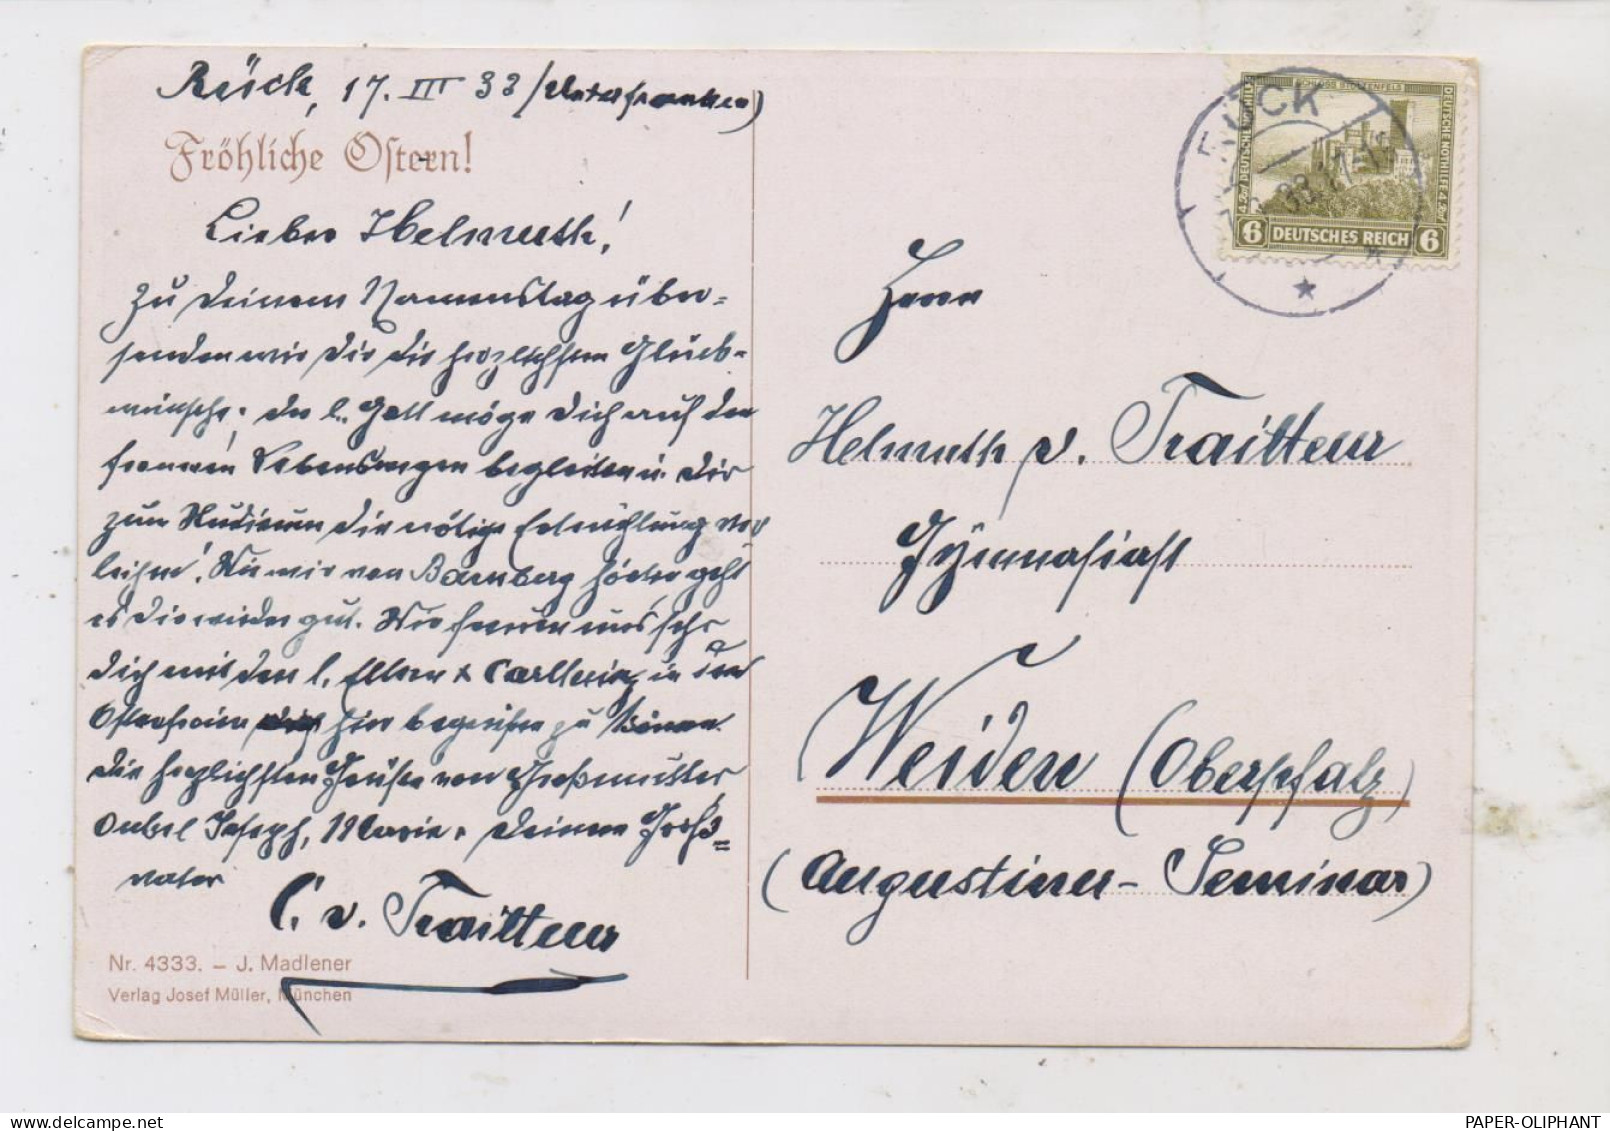 Rück, 17. III 33 / Unterfranken)
Fröhliche Ostern!
Lieber Helmuth!
Zu Deinem Namenstag über-
senden wir Dir die herzlichsten Glück-
wünsche. Der l. Gott möge Dich auf den
ferneren Lebenswegen begleiten u. Dir
zum Studium die nötige Erleuchtung ver
leihen! Wie wir von Bamberg hörten geht
es Dir wieder gut. Wir freuen uns sehr
Dich mit den l. Eltern & Carlheinz in den
Osterferien hier begrüßen zu können.
Die herzlichsten Grüße von Großmutter
Onkel Joseph, Marie & Deinem Groß=
vater
C. v. Traitteur
Nr. 4333. – J. Madlener
Verlag Josef Müller, München
RÜCK
SCHLOSS STOLZENFELS
DEUTSCHE NOTHILFE
6 DEUTSCHES REICH 6
Herrn
Helmuth v. Traitteur
Gymnasiast
Weiden (Oberpfalz)
(Augustiner-Seminar)
delcampe.net
PAPER-OLIPHANT